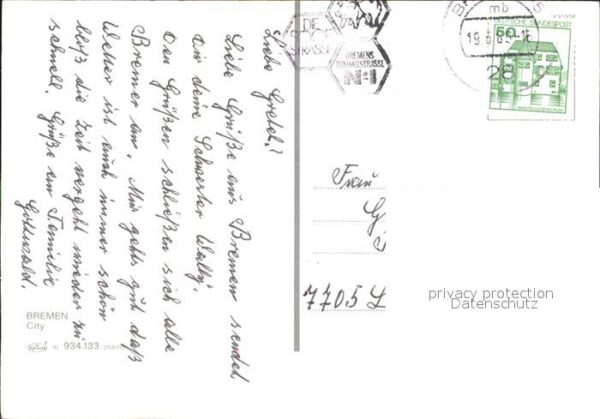 Liebe Gretel!
Liebe Grüße aus Bremen sendet
dir deine Schwester Wally.
Den Grüßen schließen sich alle
Bremer an. Mir gehts gut daß
Wetter ist auch immer schön
bloß die Zeit vergeht wieder zu
schnell. Grüße an Familie
Gottwald.
BREMEN
City
51 934.133
DIE
STRASSE
BREMENS
BUMMELSTRASSE
N=1
mb
19.6.8
28
DEUTSCHE BUNDESPOST
50
Frau
G
7705 L
privacy protection
Datenschutz